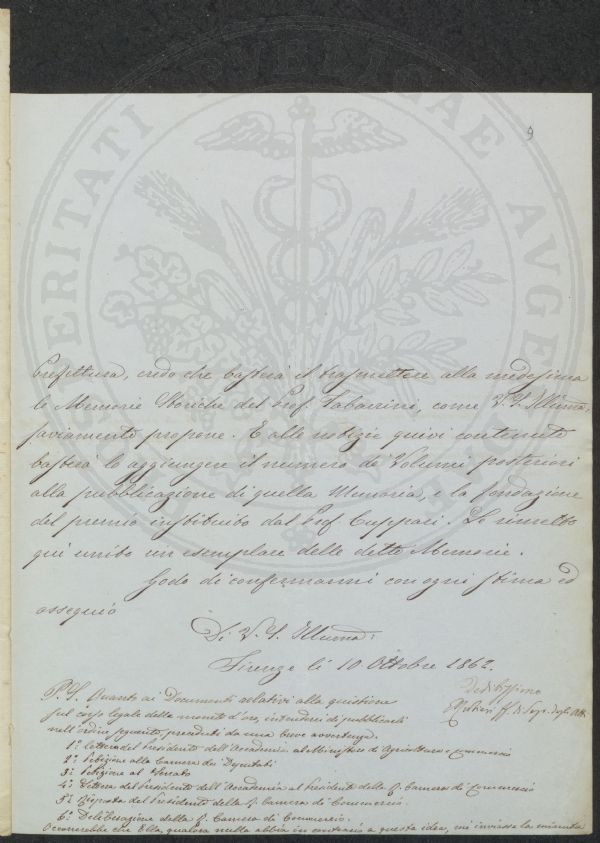 9
Prefettura, credo che basterà il trasmettere alla medesima
le Memorie Storiche del Prof. Tabarrini, come V. S. Illma:
saviamente propone. E alle notizie quivi contenute
basterà lo aggiungere il numero de' Volumi posteriori
alla pubblicazione di quella Memoria, e la fondazione
del premio instituito dal Prof. Cuppari. Le rimetto
qui unito un esemplare delle dette Memorie.
Godo di confermarmi con ogni stima ed
ossequio
Di V. S. Illuma:
Firenze li 10 Ottobre 1862.
Devotissimo
P. S. Quanto ai Documenti relativi alla quistione
sul corso legale delle monete d'oro, intenderei di pubblicarli
nell'ordine seguente, preceduti da una breve avvertenza.
1º Lettera del Presidente dell'Accademia al Ministero di Agricoltura e Commercio
2º Petizione alla Camera dei Deputati
3º Petizione al Senato
4º Lettera del Presidente dell'Accademia al Presidente della R. Camera di Commercio
5º Risposta del Presidente della R. Camera di Commercio.
6º Deliberazione della R. Camera di Commercio.
Occorrerebbe che Ella, qualora nulla abbia in contrario a questa idea, mi inviasse la minuta